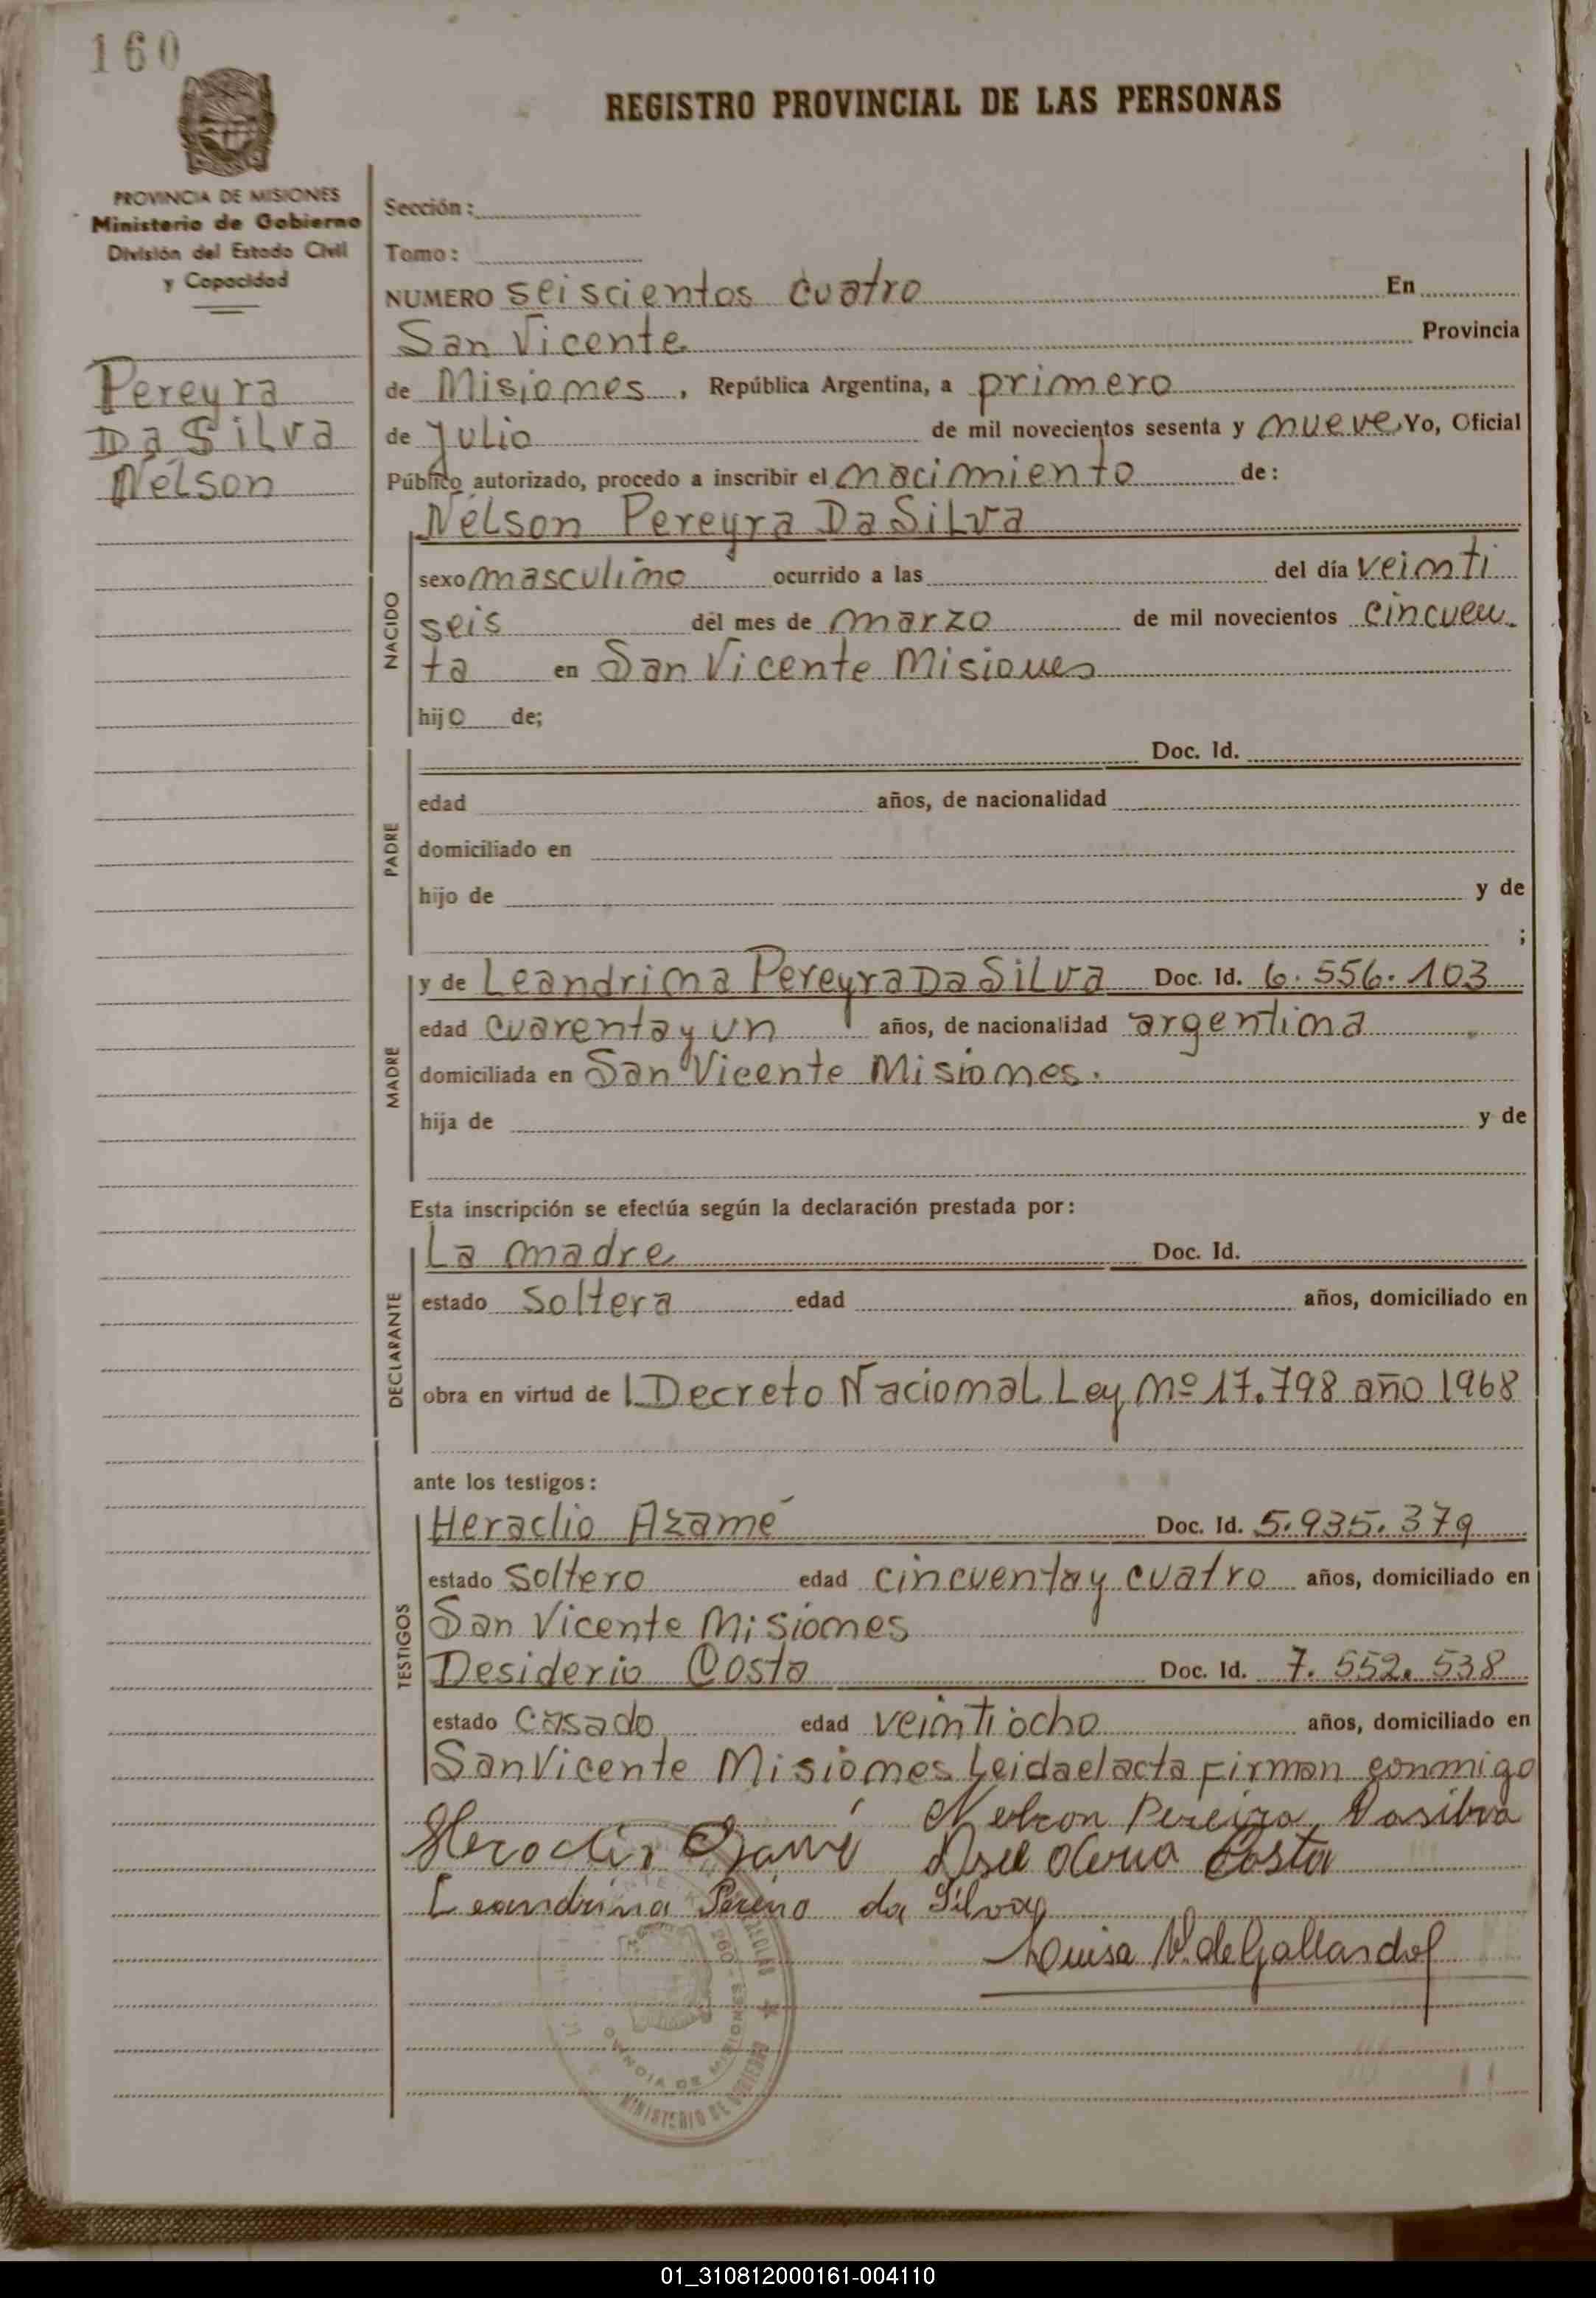 160
REGISTRO PROVINCIAL DE LAS PERSONAS
PROVINCIA DE MISIONES
Ministerio de Gobierno
División del Estado Civil
y Capacidad
Pereyra
Da Silva
Nélson
Sección:
Tomo:
NUMERO seiscientos cuatro En
San Vicente Provincia
de Misiones, República Argentina, a primero
de Julio de mil novecientos sesenta y nueve Yo, Oficial
Público autorizado, procedo a inscribir el nacimiento de:
Nélson Pereyra Da Silva
NACIDO
sexo masculino ocurrido a las del día veinti
seis del mes de marzo de mil novecientos cincuen
ta en San Vicente Misiones
hijo de;
PADRE
Doc. Id.
edad años, de nacionalidad
domiciliado en
hijo de y de
;
MADRE
y de Leandrina Pereyra Da Silva Doc. Id. 6.556.103
edad cuarenta y un años, de nacionalidad argentina
domiciliada en San Vicente Misiones.
hija de y de
Esta inscripción se efectúa según la declaración prestada por:
DECLARANTE
La madre Doc. Id.
estado soltera edad años, domiciliado en
obra en virtud de Decreto Nacional Ley Nº 17.798 año 1968
ante los testigos:
TESTIGOS
Heraclio Azamé Doc. Id. 5.935.379
estado soltero edad cincuenta y cuatro años, domiciliado en
San Vicente Misiones
Desiderio Costa Doc. Id. 7.552.538
estado casado edad veintiocho años, domiciliado en
San Vicente Misiones Leida el acta firman conmigo
Nelson Pereira Dasilva
Costa
Leandrina da Silva
Luisa V. de Gallardo
PROVINCIA DE MISIONES
MINISTERIO DE GOBIERNO
01_310812000161-004110